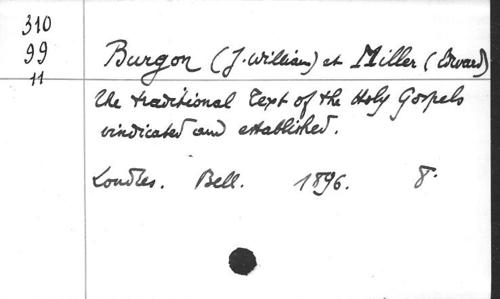 310
99
11
Burgon (J. William) et Miller (Edward)
The traditional Text of the Holy Gospels
vindicated and established.
Londres. Bell. 1896. 8°